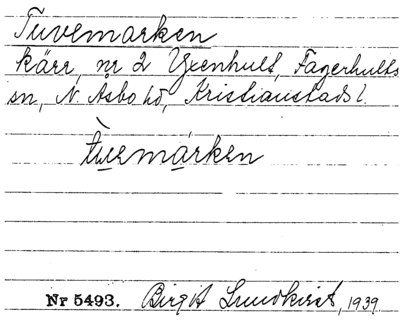 Tuvemarken
Kärr, nr 2 Yxenhult, Fagerhults
sn, N. Åsbo hd, Kristianstads l.
tùvemárken
Nr 5493. Birgit Lundkvist, 1939